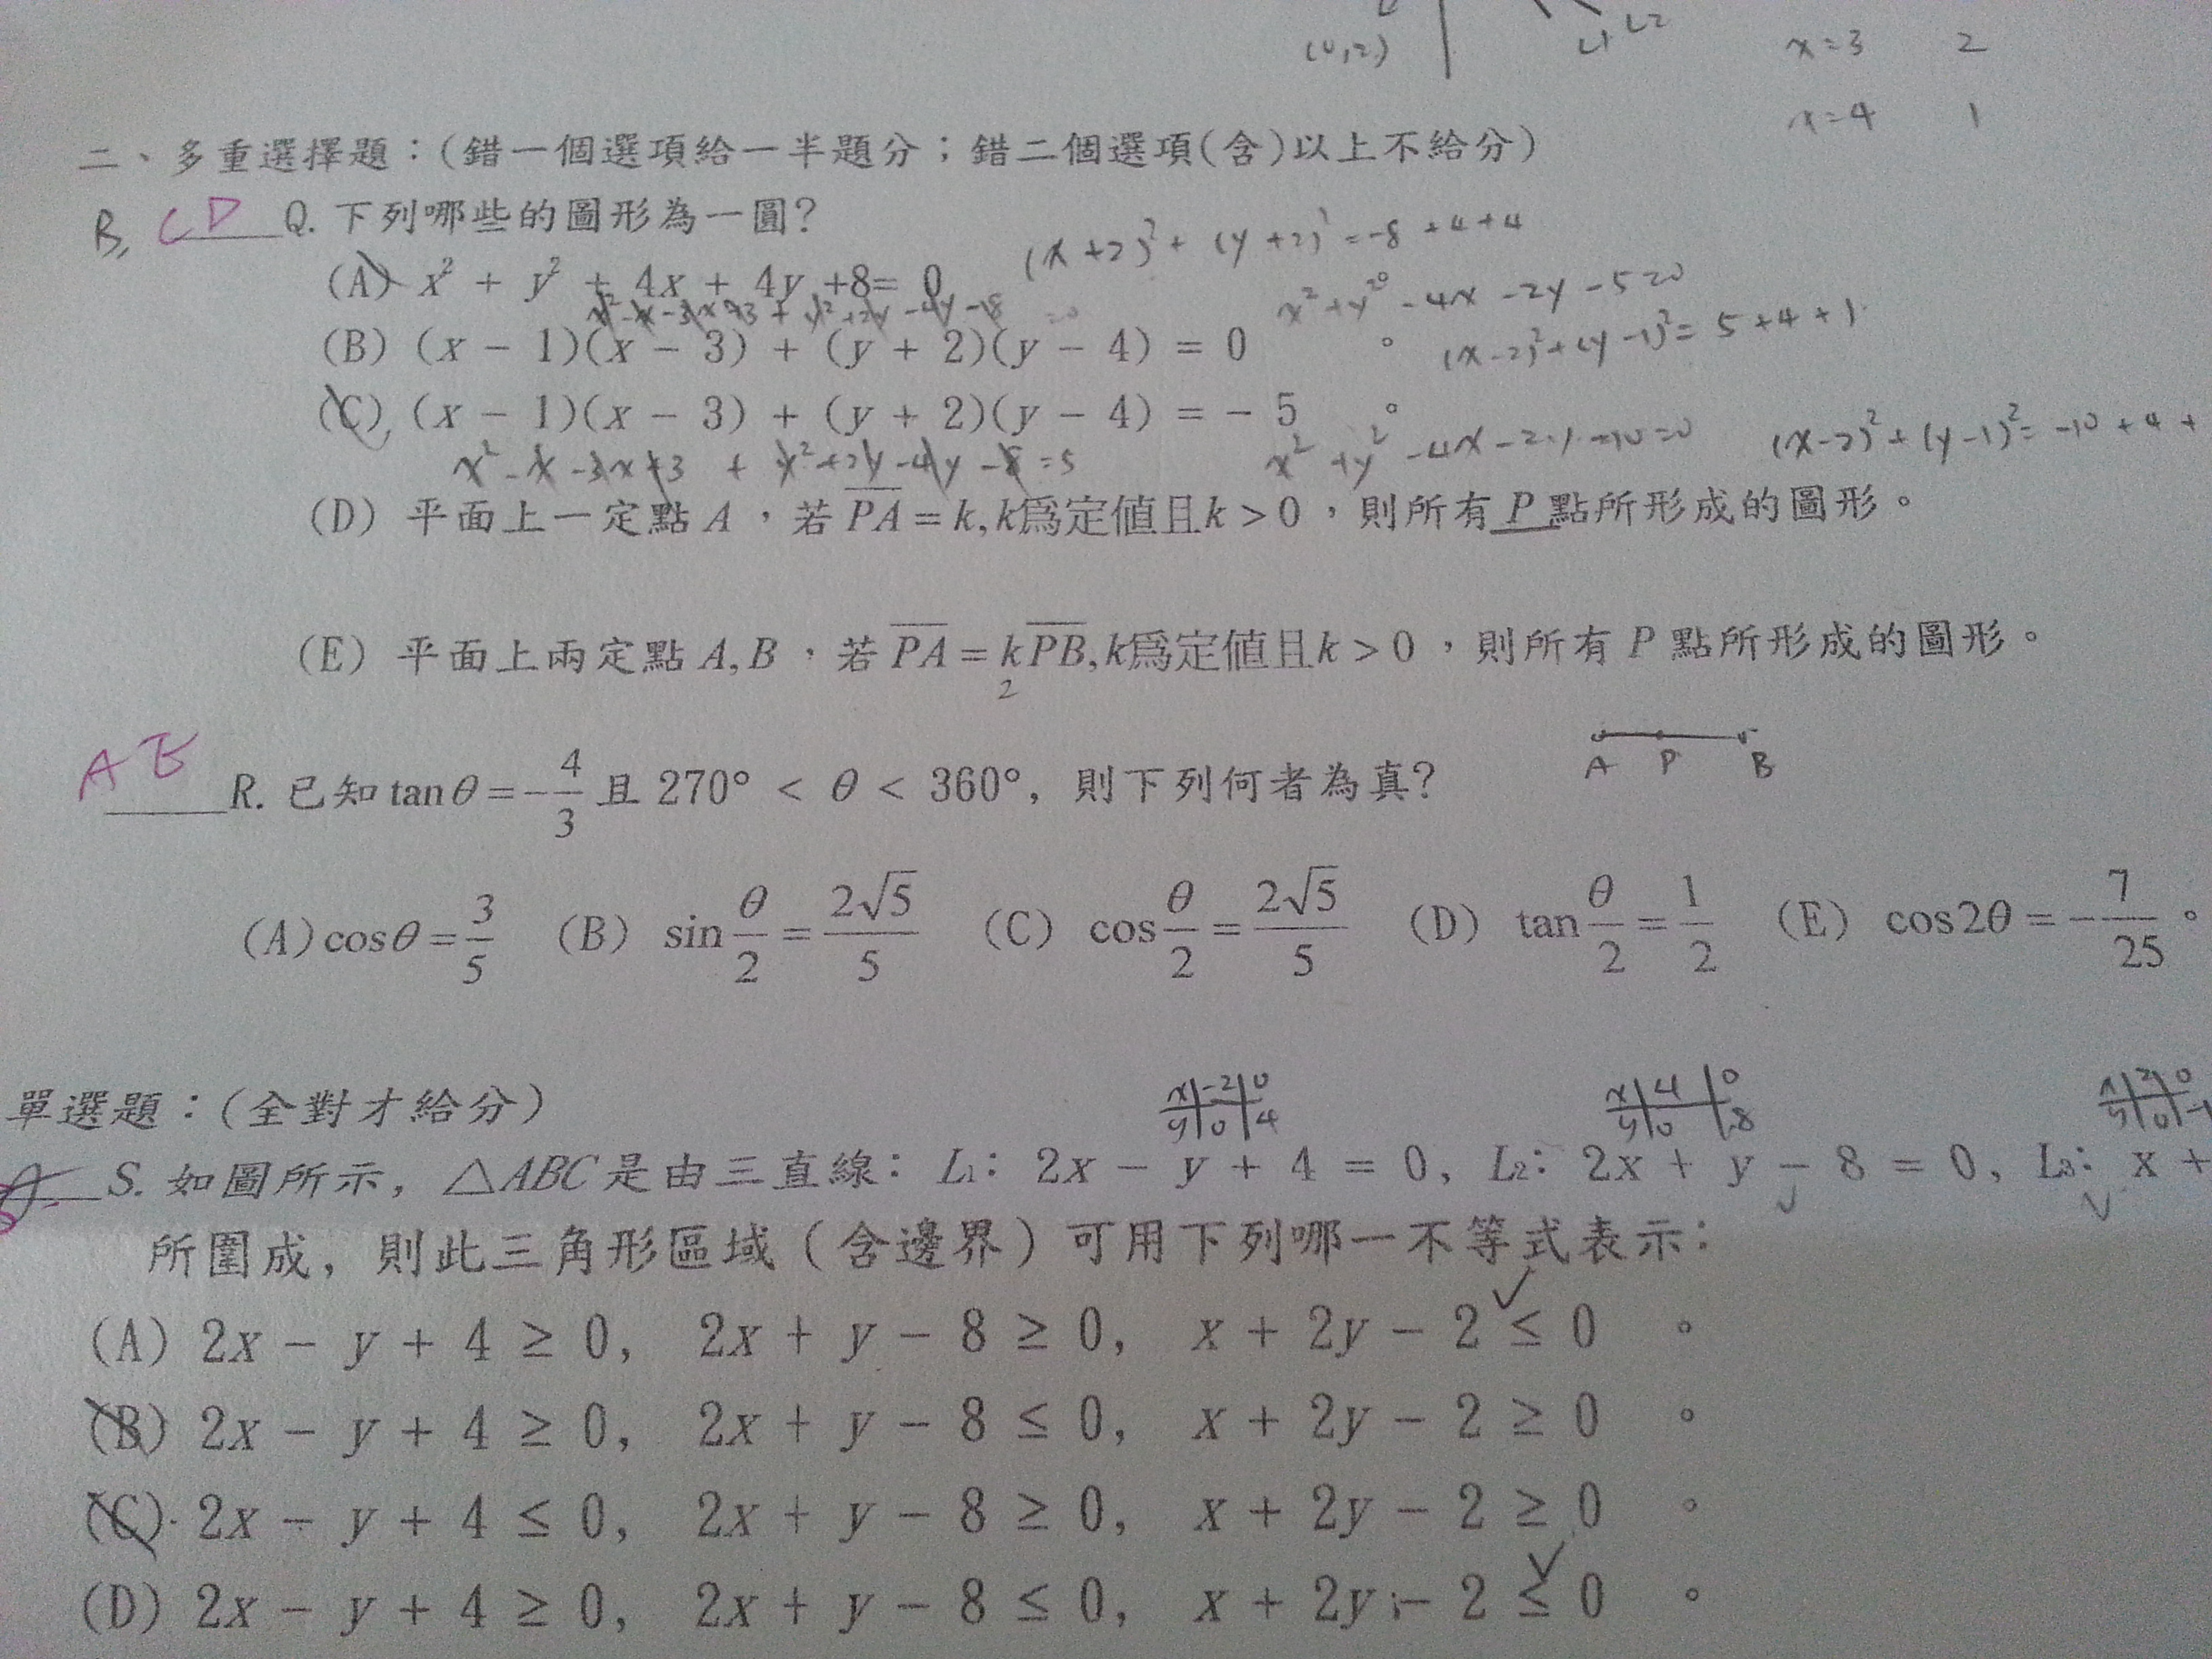 (0,2) L1 L2 x=3 2
x=4 1
二、多重選擇題：(錯一個選項給一半題分；錯二個選項(含)以上不給分)
B, CD Q. 下列哪些的圖形為一圓?
(x+2)²+(y+2)²=-8+4+4
(A) x² + y² + 4x + 4y +8= 0
x²-x-3x+3+y²+2y-4y-8 =0 x²+y²-4x-2y-5=0
(B) (x - 1)(x - 3) + (y + 2)(y - 4) = 0 。 (x-2)²+(y-1)²=5+4+1
(C) (x - 1)(x - 3) + (y + 2)(y - 4) = - 5 。
x²-x-3x+3 + y²+2y-4y-8=5 x²+y²-4x-2y-10=0 (x-2)²+(y-1)²=-10+4+
(D) 平面上一定點 A，若 PA = k, k為定值且k > 0，則所有 P 點所形成的圖形。
(E) 平面上兩定點 A, B，若 PA = kPB, k為定值且k > 0，則所有 P 點所形成的圖形。
2
A P B
AE R. 已知 tanθ = -4/3 且 270° < θ < 360°, 則下列何者為真?
(A) cosθ = 3/5 (B) sin θ/2 = 2√5/5 (C) cos θ/2 = 2√5/5 (D) tan θ/2 = 1/2 (E) cos2θ = -7/25。
單選題：(全對才給分)
x -2 0 x 4 0 x 2 0
y 0 4 y 0 8 y 0
S. 如圖所示, △ABC 是由三直線: L1: 2x - y + 4 = 0, L2: 2x + y - 8 = 0, L3: x +
所圍成, 則此三角形區域 (含邊界) 可用下列哪一不等式表示:
(A) 2x - y + 4 ≥ 0, 2x + y - 8 ≥ 0, x + 2y - 2 ≤ 0 。
(B) 2x - y + 4 ≥ 0, 2x + y - 8 ≤ 0, x + 2y - 2 ≥ 0 。
(C) 2x - y + 4 ≤ 0, 2x + y - 8 ≥ 0, x + 2y - 2 ≥ 0 。
(D) 2x - y + 4 ≥ 0, 2x + y - 8 ≤ 0, x + 2y - 2 ≤ 0 。